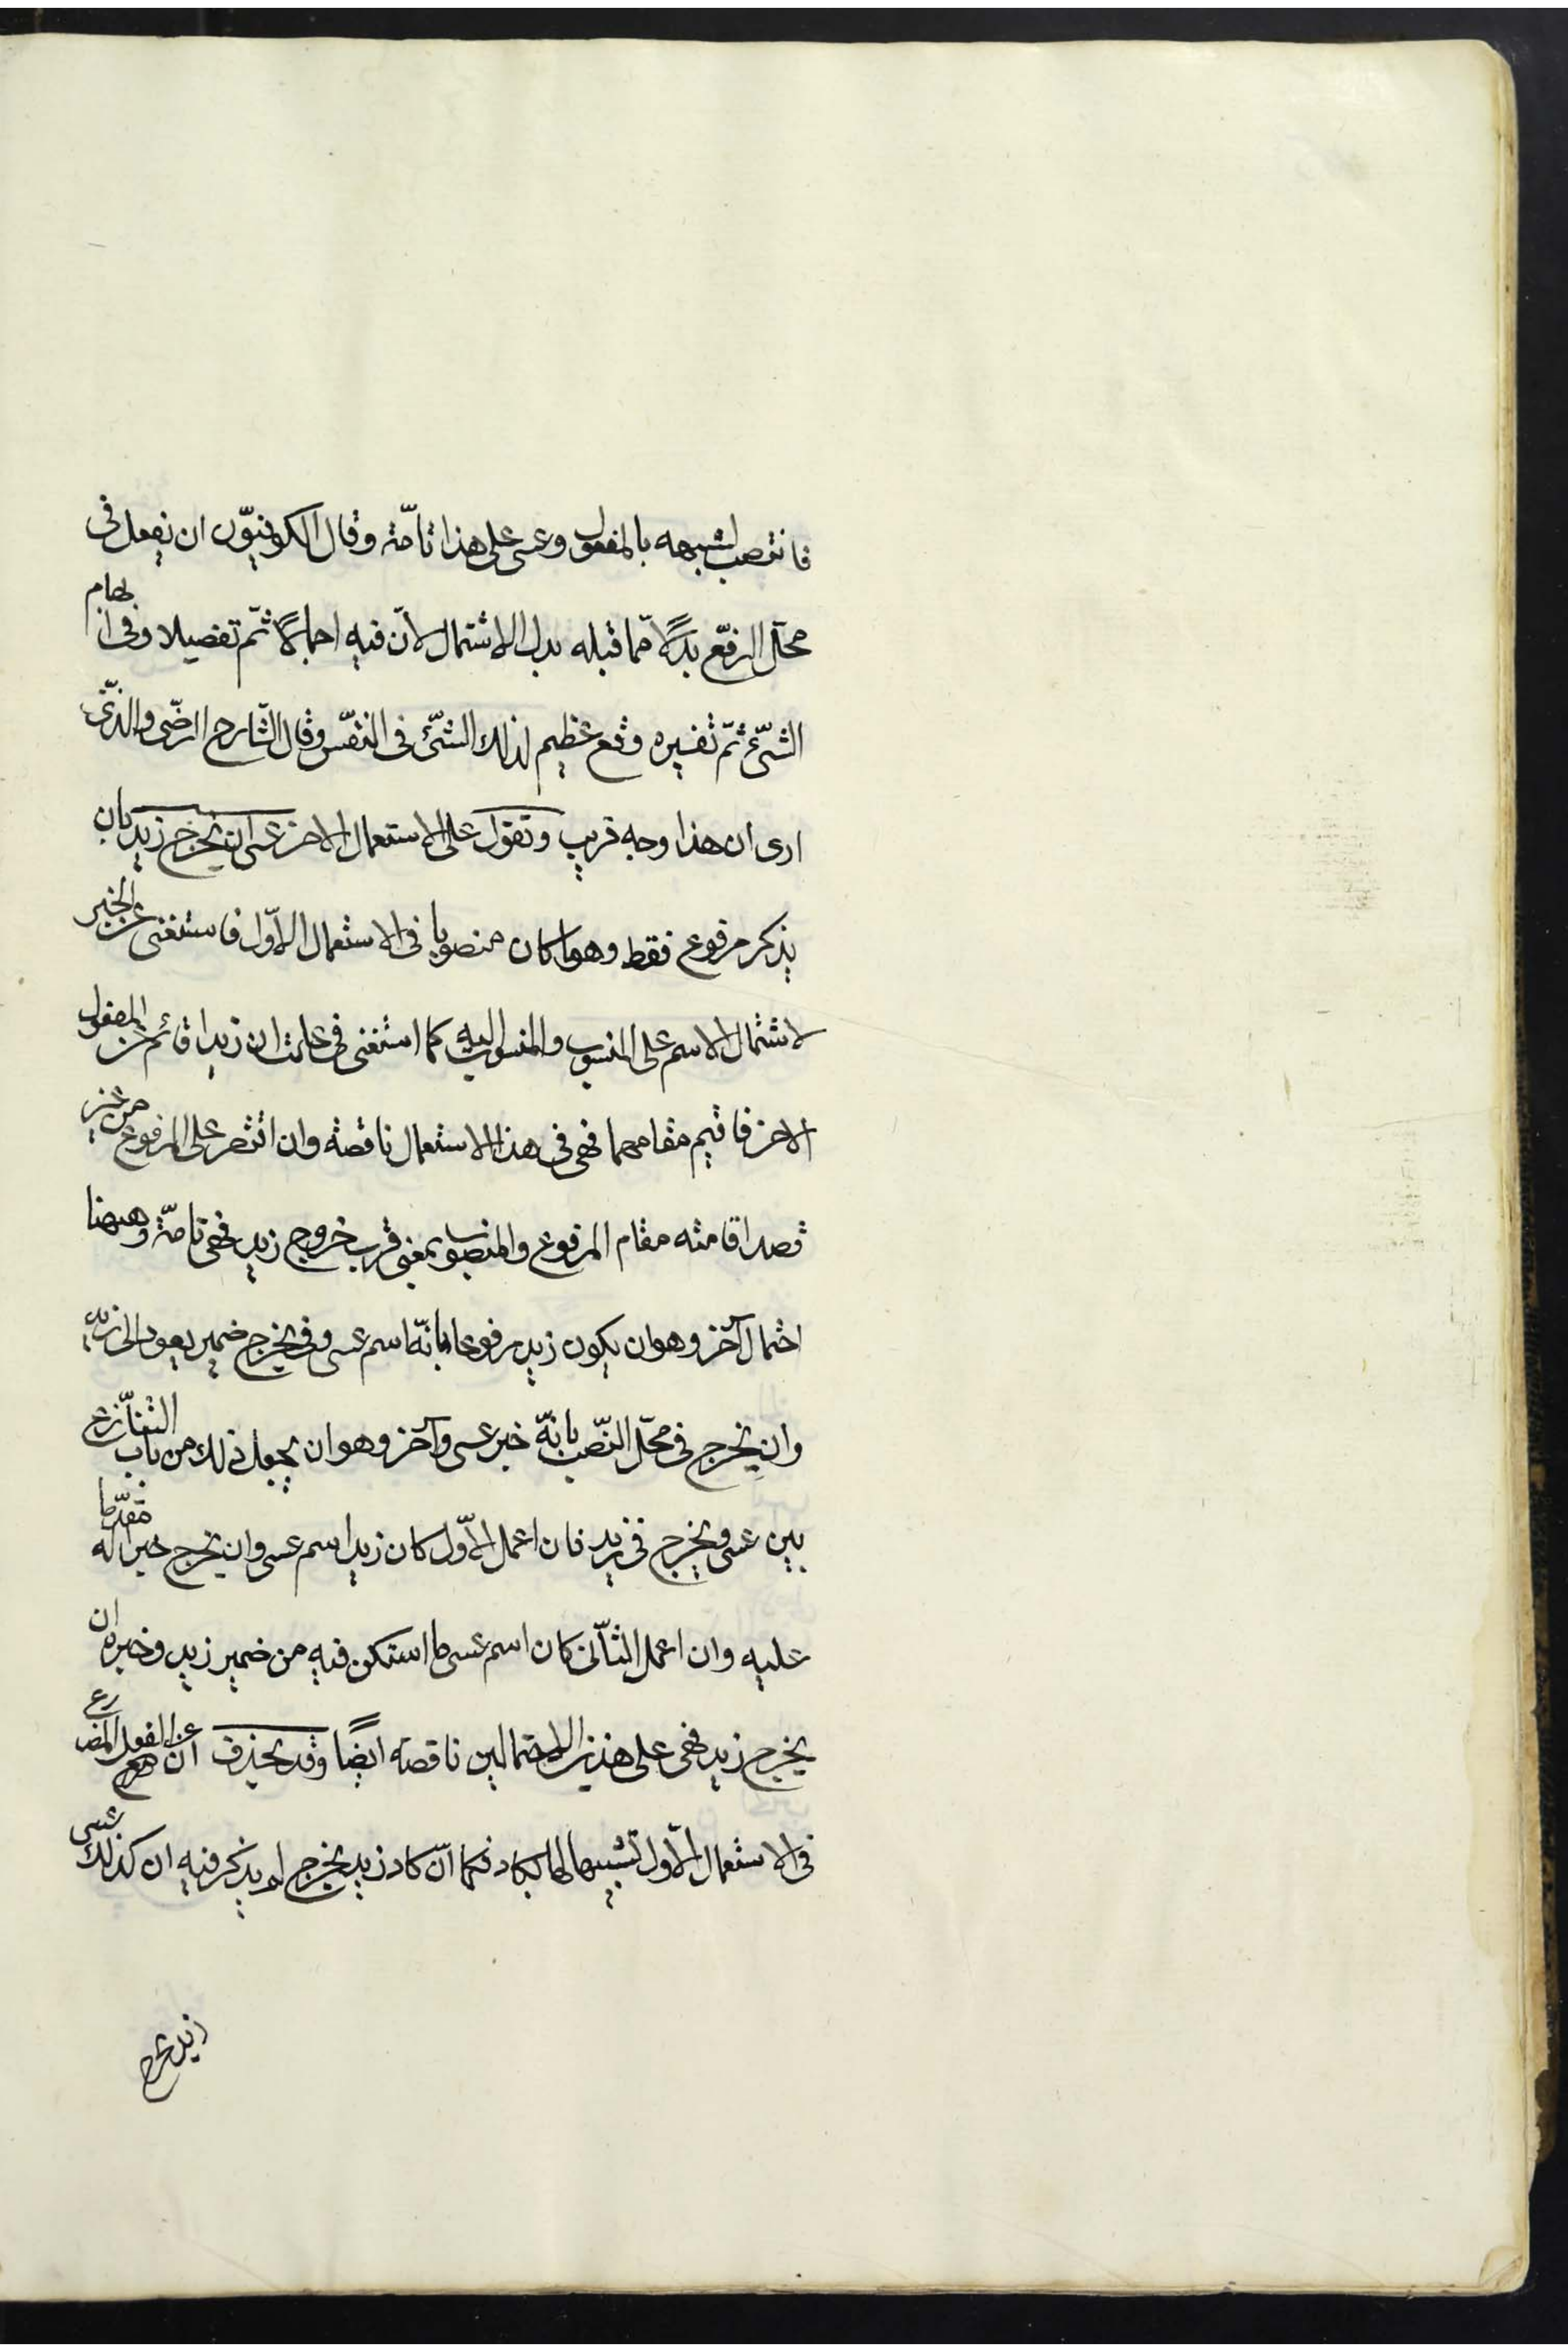 فانتصب لشبهه بالمفعول وعسى على هذا تامّة وقال الكوفيّون ان يفعل فى
محلّ الرفع بدلًا ممّا قبله بدل الاشتمال لانّ فيه اجمالًا ثمّ تفصيلا وفى ابهام
الشّئ ثمّ تفسيره وقع عظيم لذلك الشّئ فى النّفس وقال الشّارح الرضّى والذّى
ارى ان هذا وجه قريب وتقول على الاستعمال الاخر عسى ان يخرج زيد بان
يذكر مرفوع فقط وهو ما كان منصوبا فى الاستعمال الاوّل فاستغنى عن الخبر
لاشتمال الاسم على المنسوب والمنسوب اليه كما استغنى فى علمت ان زيدا قائم عن المفعول
الاخر فاقيم مقامهما فهى فى هذا الاستعمال ناقصة وان اقتصر على المرفوع من غير
قصد اقامته مقام المرفوع والمنصوب بمعنى قرب خروج زيد فهى تامّة وههنا
احتمال آخر وهو ان يكون زيد مرفوعا بانّه اسم عسى وفى يخرج ضمير يعود الى زيد
وان يخرج فى محلّ النّصب بانّه خبر عسى وآخر وهو ان يجعل ذلك من باب التنازع
بين عسى ويخرج فى زيد فان اعمل الاوّل كان زيد اسم عسى وان يخرج خبرا له مقدّما
عليه وان اعمل الثّانى كان اسم عسى ما استكن فيه من ضمير زيد وخبره ان
يخرج زيد فهى على هذين الاحتمالين ناقصه ايضًا وقد يحذف ان عن الفعل المضارع
فى الاستعمال الاوّل تشبيها لها بكاد فكما انّ كاد زيد يخرج لم يذكر فيه ان كذلك عسى
زيد يخرج